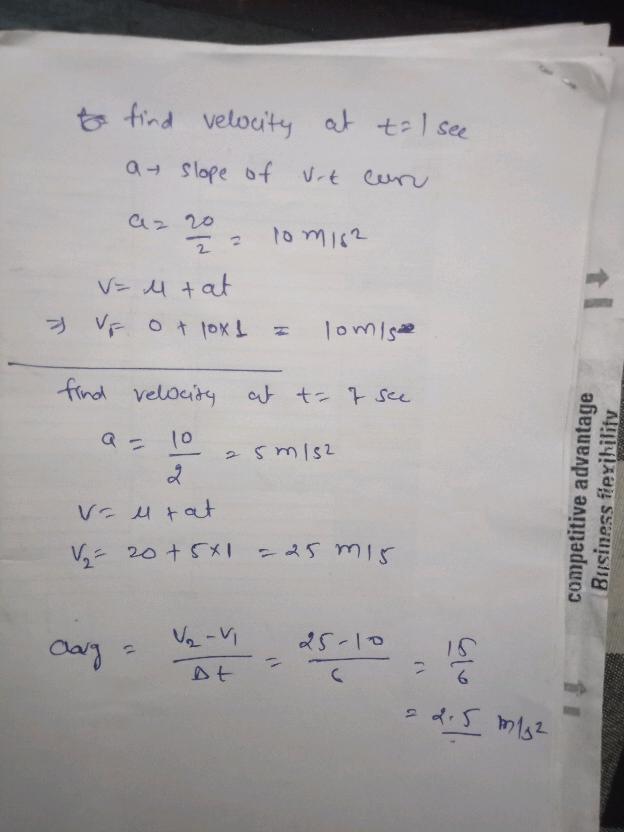 find velocity at t=1 sec
a → slope of v-t curv
a = 20/2 = 10 m/s2
v = u + at
⇒ V1= 0 + 10x1 = 10m/s
find velocity at t= 7 sec
a = 10/2 = 5 m/s2
v = u + at
V2= 20 + 5x1 = 25 m/s
aavg = V2-V1/Δt = 25-10/6 = 15/6
= 2.5 m/s2
competitive advantage
Business flexibility